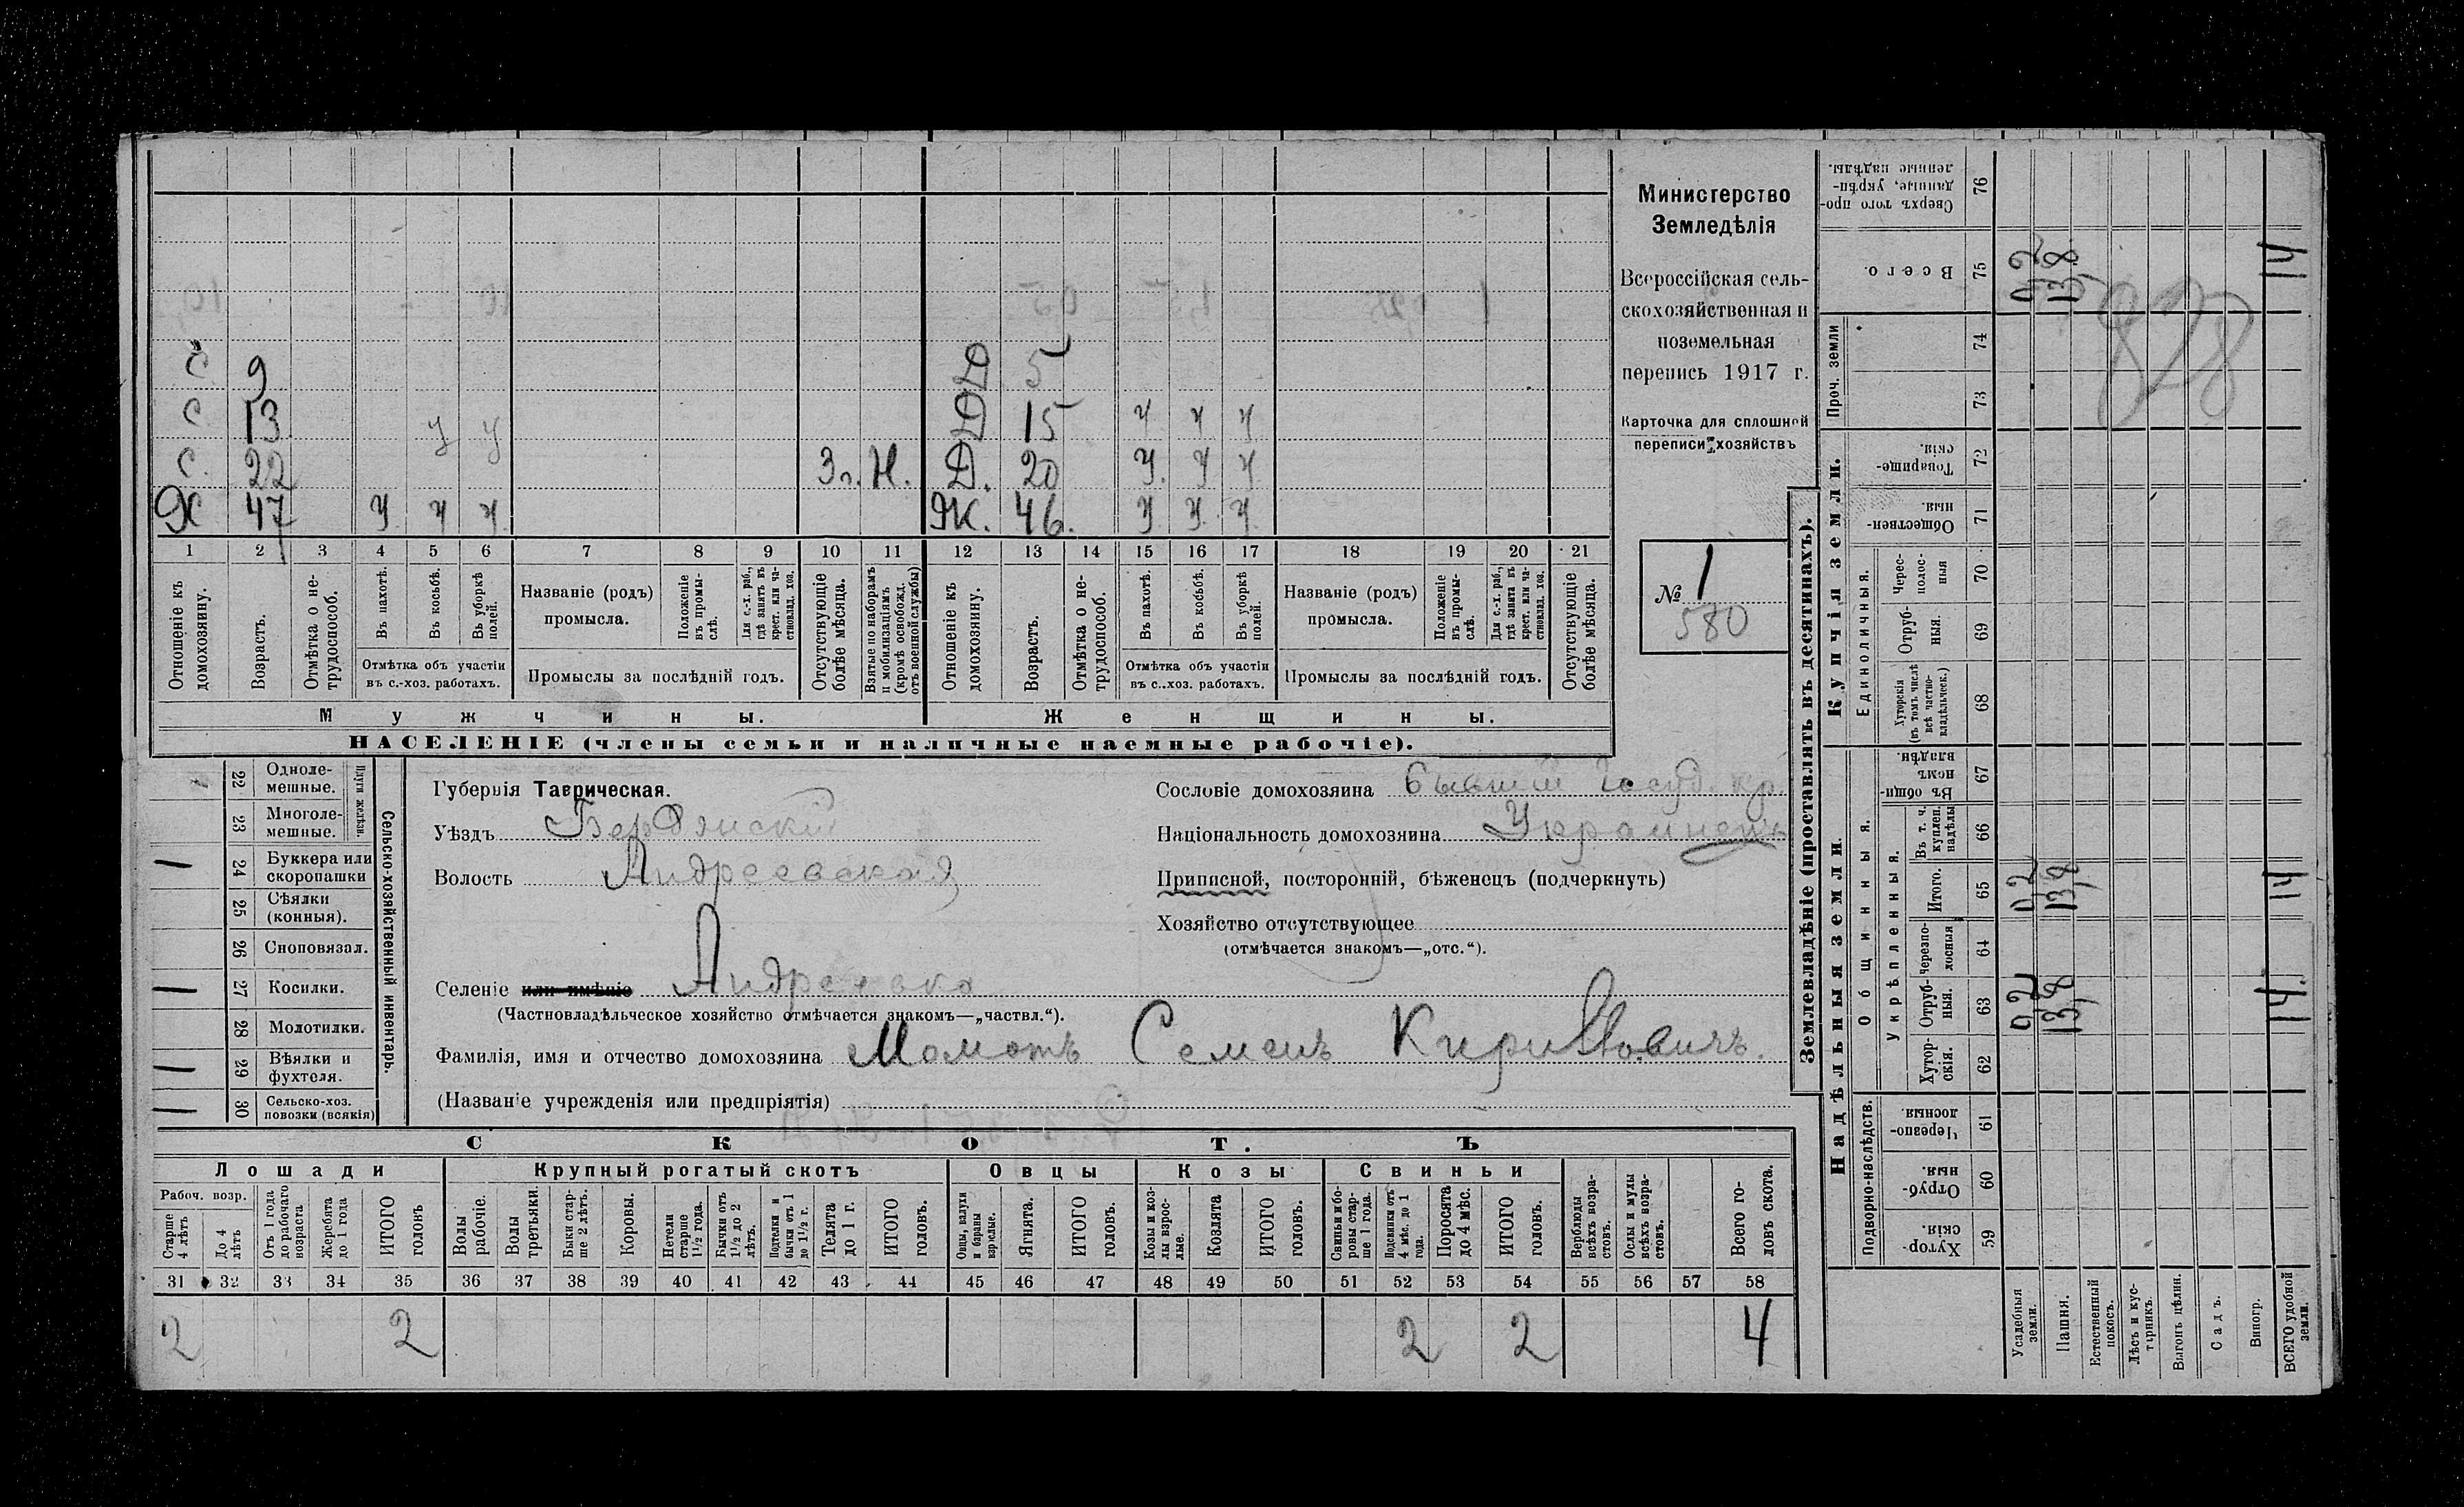 С 9 Д 5
С 13 у у Д 15 у у у
С. 22 3 г. Н. Д. 20 у. у у
Х 47 у у у Ж. 46. у у. у
1 2 3 4 5 6 7 8 9 10 11 12 13 14 15 16 17 18 19 20 21
Отношеніе къ домохозяину.
Возрастъ.
Отмѣтка о нетрудоспособ.
Въ пахотѣ.
Въ косьбѣ.
Въ уборкѣ полей.
Отмѣтка объ участіи
въ с.-хоз. работахъ.
Названіе (родъ)
промысла.
Положеніе въ промыслѣ.
Для с.-х. раб., гдѣ занятъ въ крест. или частновлад. хоз.
Промыслы за послѣдній годъ.
Отсутствующіе болѣе мѣсяца.
Взятые по наборамъ и мобилизаціямъ (кромѣ освобожд. отъ военной службы)
Отношеніе къ домохозяину.
Возрастъ.
Отмѣтка о нетрудоспособ.
Въ пахотѣ.
Въ косьбѣ.
Въ уборкѣ полей.
Отмѣтка объ участіи
въ с..хоз. работахъ.
Названіе (родъ)
промысла.
Положеніе въ промыслѣ.
Для с.-х. раб., гдѣ занята въ крест. или частновлад. хоз.
Промыслы за послѣдній годъ.
Отсутствующіе болѣе мѣсяца.
Мужчины. Женщины.
НАСЕЛЕНІЕ (члены семьи и наличные наемные рабочіе).
Министерство
Земледѣлія
Всероссійская сель-
скохозяйственная и
поземельная
перепись 1917 г.
Карточка для сплошной
переписи хозяйствъ
№ 1
580
Сельско-хозяйственный инвентарь.
Плуги желѣзн.
22 Одноле-
мешные.
23 Многоле-
мешные.
24 Буккера или
скоропашки
25 Сѣялки
(конныя).
26 Сноповязал.
27 Косилки.
28 Молотилки.
29 Вѣялки и
фухтеля.
30 Сельско-хоз.
повозки (всякія)
Губернія Таврическая.
Уѣздъ Бердянскій
Волость Андреевская
Селеніе или имѣніе Андреевка
(Частновладѣльческое хозяйство отмѣчается знакомъ—„частвл.“).
Фамилія, имя и отчество домохозяина Момотъ Семенъ Кириловичъ.
(Названіе учрежденія или предпріятія)
Сословіе домохозяина бывший госуд. кр.
Національность домохозяина Украинецъ
Приписной, посторонній, бѣженецъ (подчеркнуть)
Хозяйство отсутствующее
(отмѣчается знакомъ—„отс.“).
СКОТ.Ъ
Лошади Крупный рогатый скотъ Овцы Козы Свиньи
Рабоч. возр.
Старше 4 лѣтъ
До 4 лѣтъ
Отъ 1 года до рабочаго возраста
Жеребята до 1 года
ИТОГО головъ
Волы рабочіе.
Волы третьяки.
Быки старше 2 лѣтъ.
Коровы.
Нетели старше 1½ года.
Бычки отъ 1½ до 2 лѣтъ.
Подтелки и бычки отъ 1 до 1½ г.
Телята до 1 г.
ИТОГО головъ.
Овцы, валухи и бараны взрослые.
Ягнята.
ИТОГО головъ.
Козы и козлы взрослые.
Козлята
ИТОГО головъ.
Свиньи и боровы старше 1 года.
Подсвинки отъ 4 мѣс. до 1 года.
Поросята до 4 мѣс.
ИТОГО головъ.
Верблюды всѣхъ возрастовъ.
Ослы и мулы всѣхъ возрастовъ.
Всего головъ скота.
31 32 33 34 35 36 37 38 39 40 41 42 43 44 45 46 47 48 49 50 51 52 53 54 55 56 57 58
2 2 2 2 4
Землевладѣніе (проставлять въ десятинахъ).
Надѣльныя земли
Купчія земли.
Проч. земли
Подворно-наслѣдств.
Общинныя.
Укрѣпленныя.
Единоличныя.
Хуторскія. 59
Отрубныя. 60
Черезполосныя. 61
Хуторскія. 62
Отрубныя. 63
Черезполосныя 64
Итого. 65
Въ т. ч. куплен. надѣлы 66
Въ общинномъ владѣн. 67
Хуторскія (въ томъ числѣ всѣ частновладѣльческ.) 68
Отрубныя. 69
Чересполосныя 70
Общественныя. 71
Товарищескія. 72
73
74
Всего. 75
Сверхъ того проданные, укрѣпленные надѣлы. 76
Усадебныя земли. 0,2 0,2 0,2
Пашня. 13,8 13,8 13,8
Естественный покосъ.
Лѣсъ и кустарникъ.
Выгонъ цѣлин.
Садъ.
Виногр.
ВСЕГО удобной земли. 14. 14 14
828